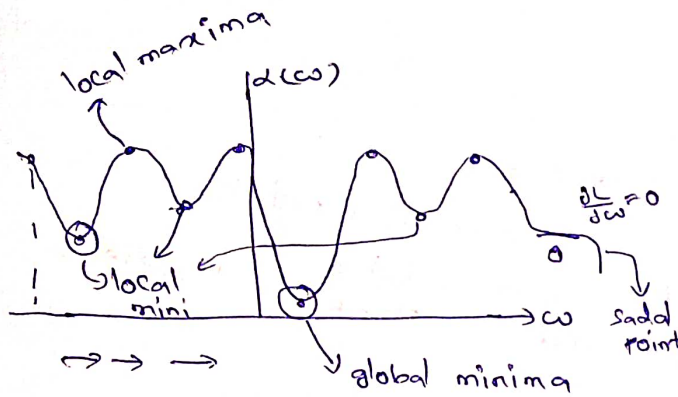 local maxima
α(ω)
∂L/∂ω = 0
local
mini
ω
sadd
point
global minima